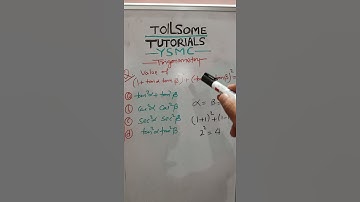 TOILSOME
TUTORIALS
YSMC
Trigonometry
Q. Value of
(1+tanα tanβ)² + (tan
a tan²α + tan²β
b cos²α cos²β
c sec²α sec²β
d tan²α tan²β
α = β =
(1+1)² + (1-
2² = 4